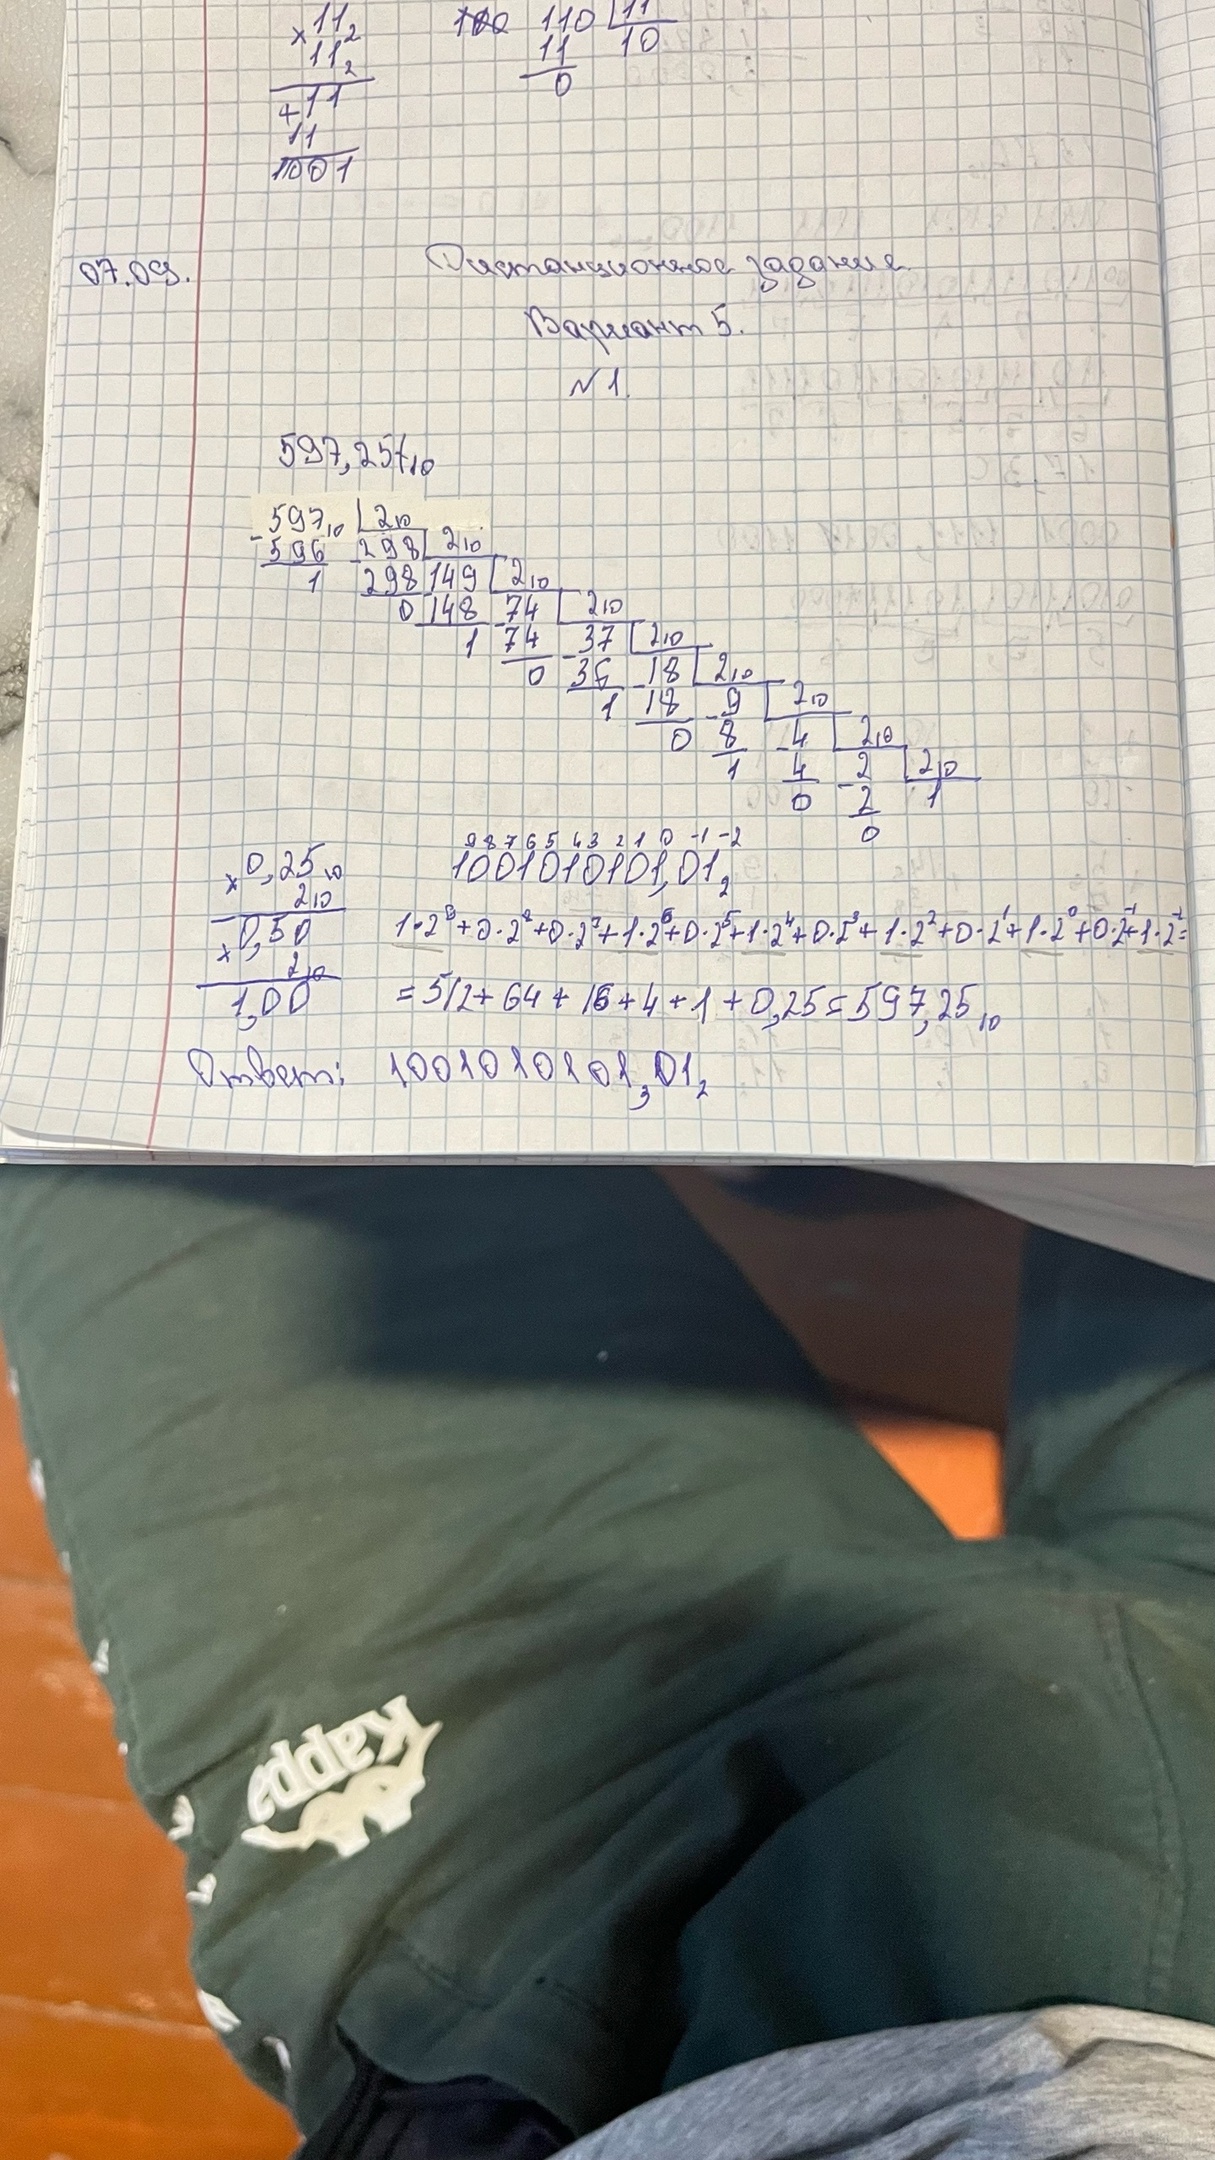 ×11₂ 100 110 11
11₂ 11 10
+11 0
11
1001
07.09. Дистанционное задание
Вариант 5.
№1.
597,25₁₀
-597₁₀ 2₁₀
596 -298 2₁₀
1 298 149 2₁₀
0 148 -74 2₁₀
1 74 -37 2₁₀
0 36 -18 2₁₀
1 18 -9 2₁₀
0 8 -4 2₁₀
1 4 -2 2₁₀
0 2 1
0
9 8 7 6 5 4 3 2 1 0 -1 -2
×0,25₁₀ 1001010101,01₂
2₁₀
×0,50 1·2⁹+0·2⁸+0·2⁷+1·2⁶+0·2⁵+1·2⁴+0·2³+1·2²+0·2¹+1·2⁰+0·2⁻¹+1·2⁻²=
2₁₀
1,00 =512+64+16+4+1+0,25=597,25₁₀
Ответ: 1001010101,01₂
Kappa